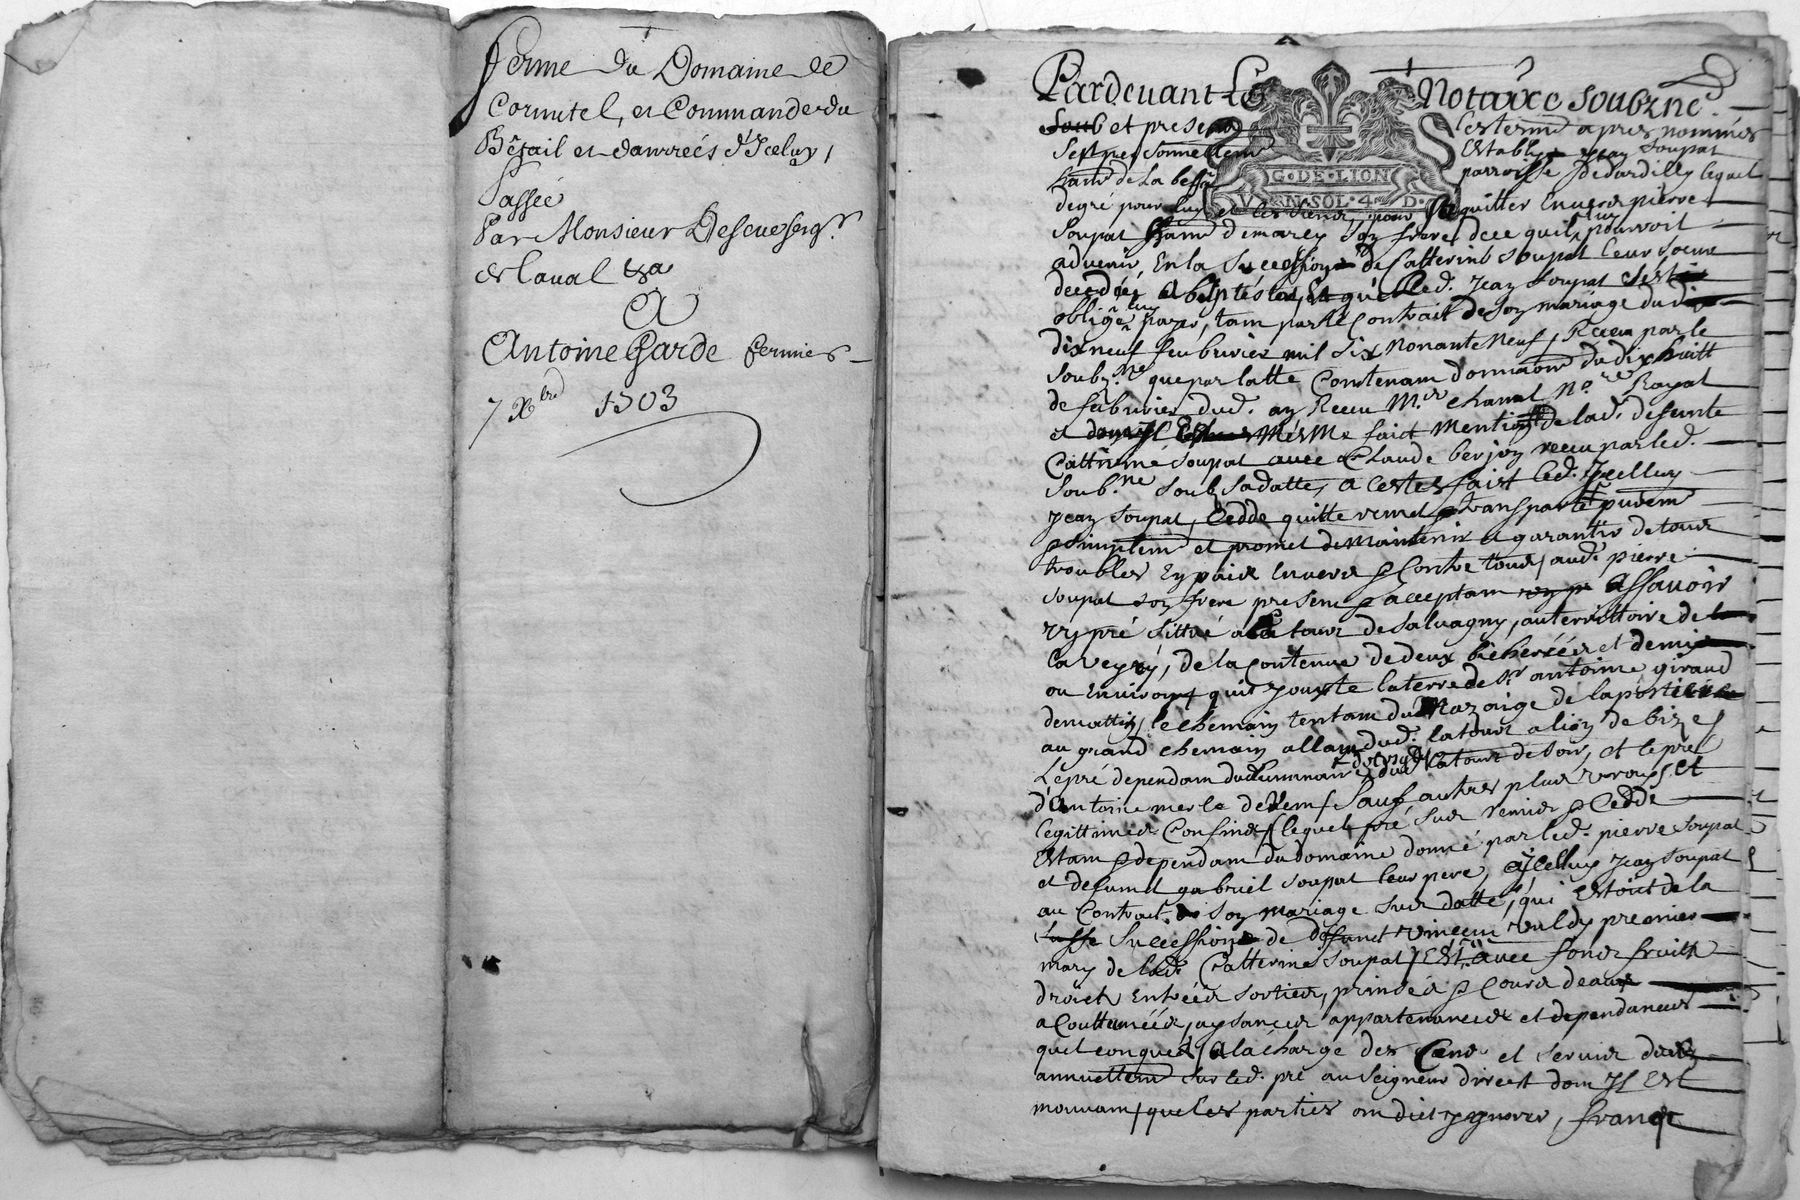 ferme du Domaine de
Cornutel, et Commande du
Bétail et danrrées d'Jceluy,
Passée
Par Monsieur Descuesergr
et Laval &a
A
Antoine Garde fermier
7 Xbre 1703
Pardevant Le Notaire soubzné
soub et presens les tesmo apres nommés
sest personnellem establi Jean Soupat
G·DE·LION
habt de la paroisse de dardilly lequel
V N·SOL·4 D·
degré pour luy et les siens, pour sacquitter Envers pierre
Soupat habt demarcy son frere, de ce quil luy pourroit
advenir En la succession de Catterine Soupat leur soeur
decedée Ab intestat, Et que led. Jean Soupat sest
obligé luy payer, tam par le Contrait de son mariage du di
dixneuf feubvrier mil six Nonante Neuf, Receu par le
soubz.né que par latte Contenam donnaon du dix huitt
de febvrier dud. an Receu Mr. chanal No.re Royal
et mesme faict mention de lad. deffunte
Catterine Soupat avec Claude berjon receu par led.
soub.né soubz sa datte, A Cestes faist led. Jcelluy
Jean Soupat, Cedde quitte remet & transporte purem
& simplem et promet de maintenir et garantir de tous
troubles En paix Envers & Contre tous, aud. pierre
Soupat son frere presens & acceptam Assavoir
Un pré sittué a la tour de salvagny, au territtoire de
la veyry, de la Contenue de deux bicherées et demi
ou Environ, quit Jouxte la terre de Sr antoine giraud
de mattin, le chemain tentam du Mazaige de la
au grand chemain allam dud. latour a lion de bize,
Le pré dependam du Luminaire dud. Latour de soir, et le pré
d'Antoine merle de Vem, Sauf autres plus vrays et
legittimes Confins, lequel pré sus remis & Cedde
Estam & dependam du domaine donné par led. pierre Soupat
et defunct gabriel Soupat leur pere, a Jcelluy Jean Soupat
au Contrait de son mariage sus datte, qui Estoit de la
succession de deffunct vincem premier
mary de lad. Catterine Soupat, Est avec fonds fruits
droits Entrées sorties, prinses & Cours deaux
acouttumées, aysances appartenances et dependances
quelconques, A la charge des Cens et servis deubz
annuellem sur led. pré au seigneur direct dom Jl Est
mouvam, que les parties om dict ygnorer, franq